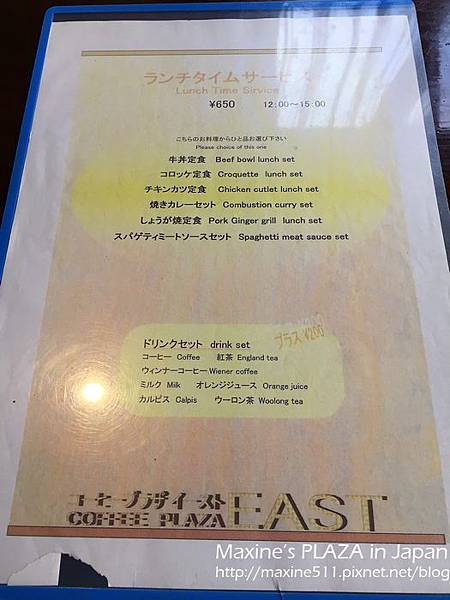 ランチタイムサービス
Lunch Time Sirvice
¥650 12:00～15:00
こちらのお料理からひと品お選び下さい
Please choice of this one
牛丼定食 Beef bowl lunch set
コロッケ定食 Croquette lunch set
チキンカツ定食 Chicken cutlet lunch set
焼きカレーセット Combustion curry set
しょうが焼定食 Pork Ginger grill lunch set
スパゲティミートソースセット Spaghetti meat sauce set
ドリンクセット drink set プラス¥200
コーヒー Coffee 紅茶 England tea
ウィンナーコーヒー Wiener coffee
ミルク Milk オレンジジュース Orange juice
カルピス Calpis ウーロン茶 Woolong tea
コーヒープラザイースト
COFFEE PLAZA EAST
Maxine's PLAZA in Japan
http://maxine511.pixnet.net/blog